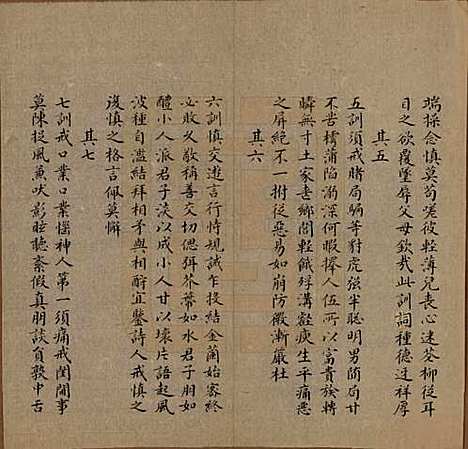 端操念慎莫苟嗟彼輕薄兄喪心迷花柳從耳
目之欲覆墜辱父母欽哉此訓詞種德迓祥厚
其五
五訓須戒賭局騙等豺虎強半聰明男陷局甘
不苦樗蒲陷溺深何暇擇人伍所以富貴族轉
瞬無寸土家世鄉閭輕餓殍溝壑疾生平痛惡
之屏絕不一拊從惡易如崩防微漸嚴杜
其六
六訓慎交遊言行時規誡乍投結金蘭始容終
必敗又敬稱善交切偲弭芥蒂如水君子朋如
醴小人派君子淡以成小人甘以壞片語起風
波種自濫結拜相矛與相酬宜鑒詩人戒慎之
復慎之格言佩莫懈
其七
七訓戒口業口業惱神人第一須痛戒閨閫事
莫陳捉風兼吠影睢聽紊假真朋談資歎中舌